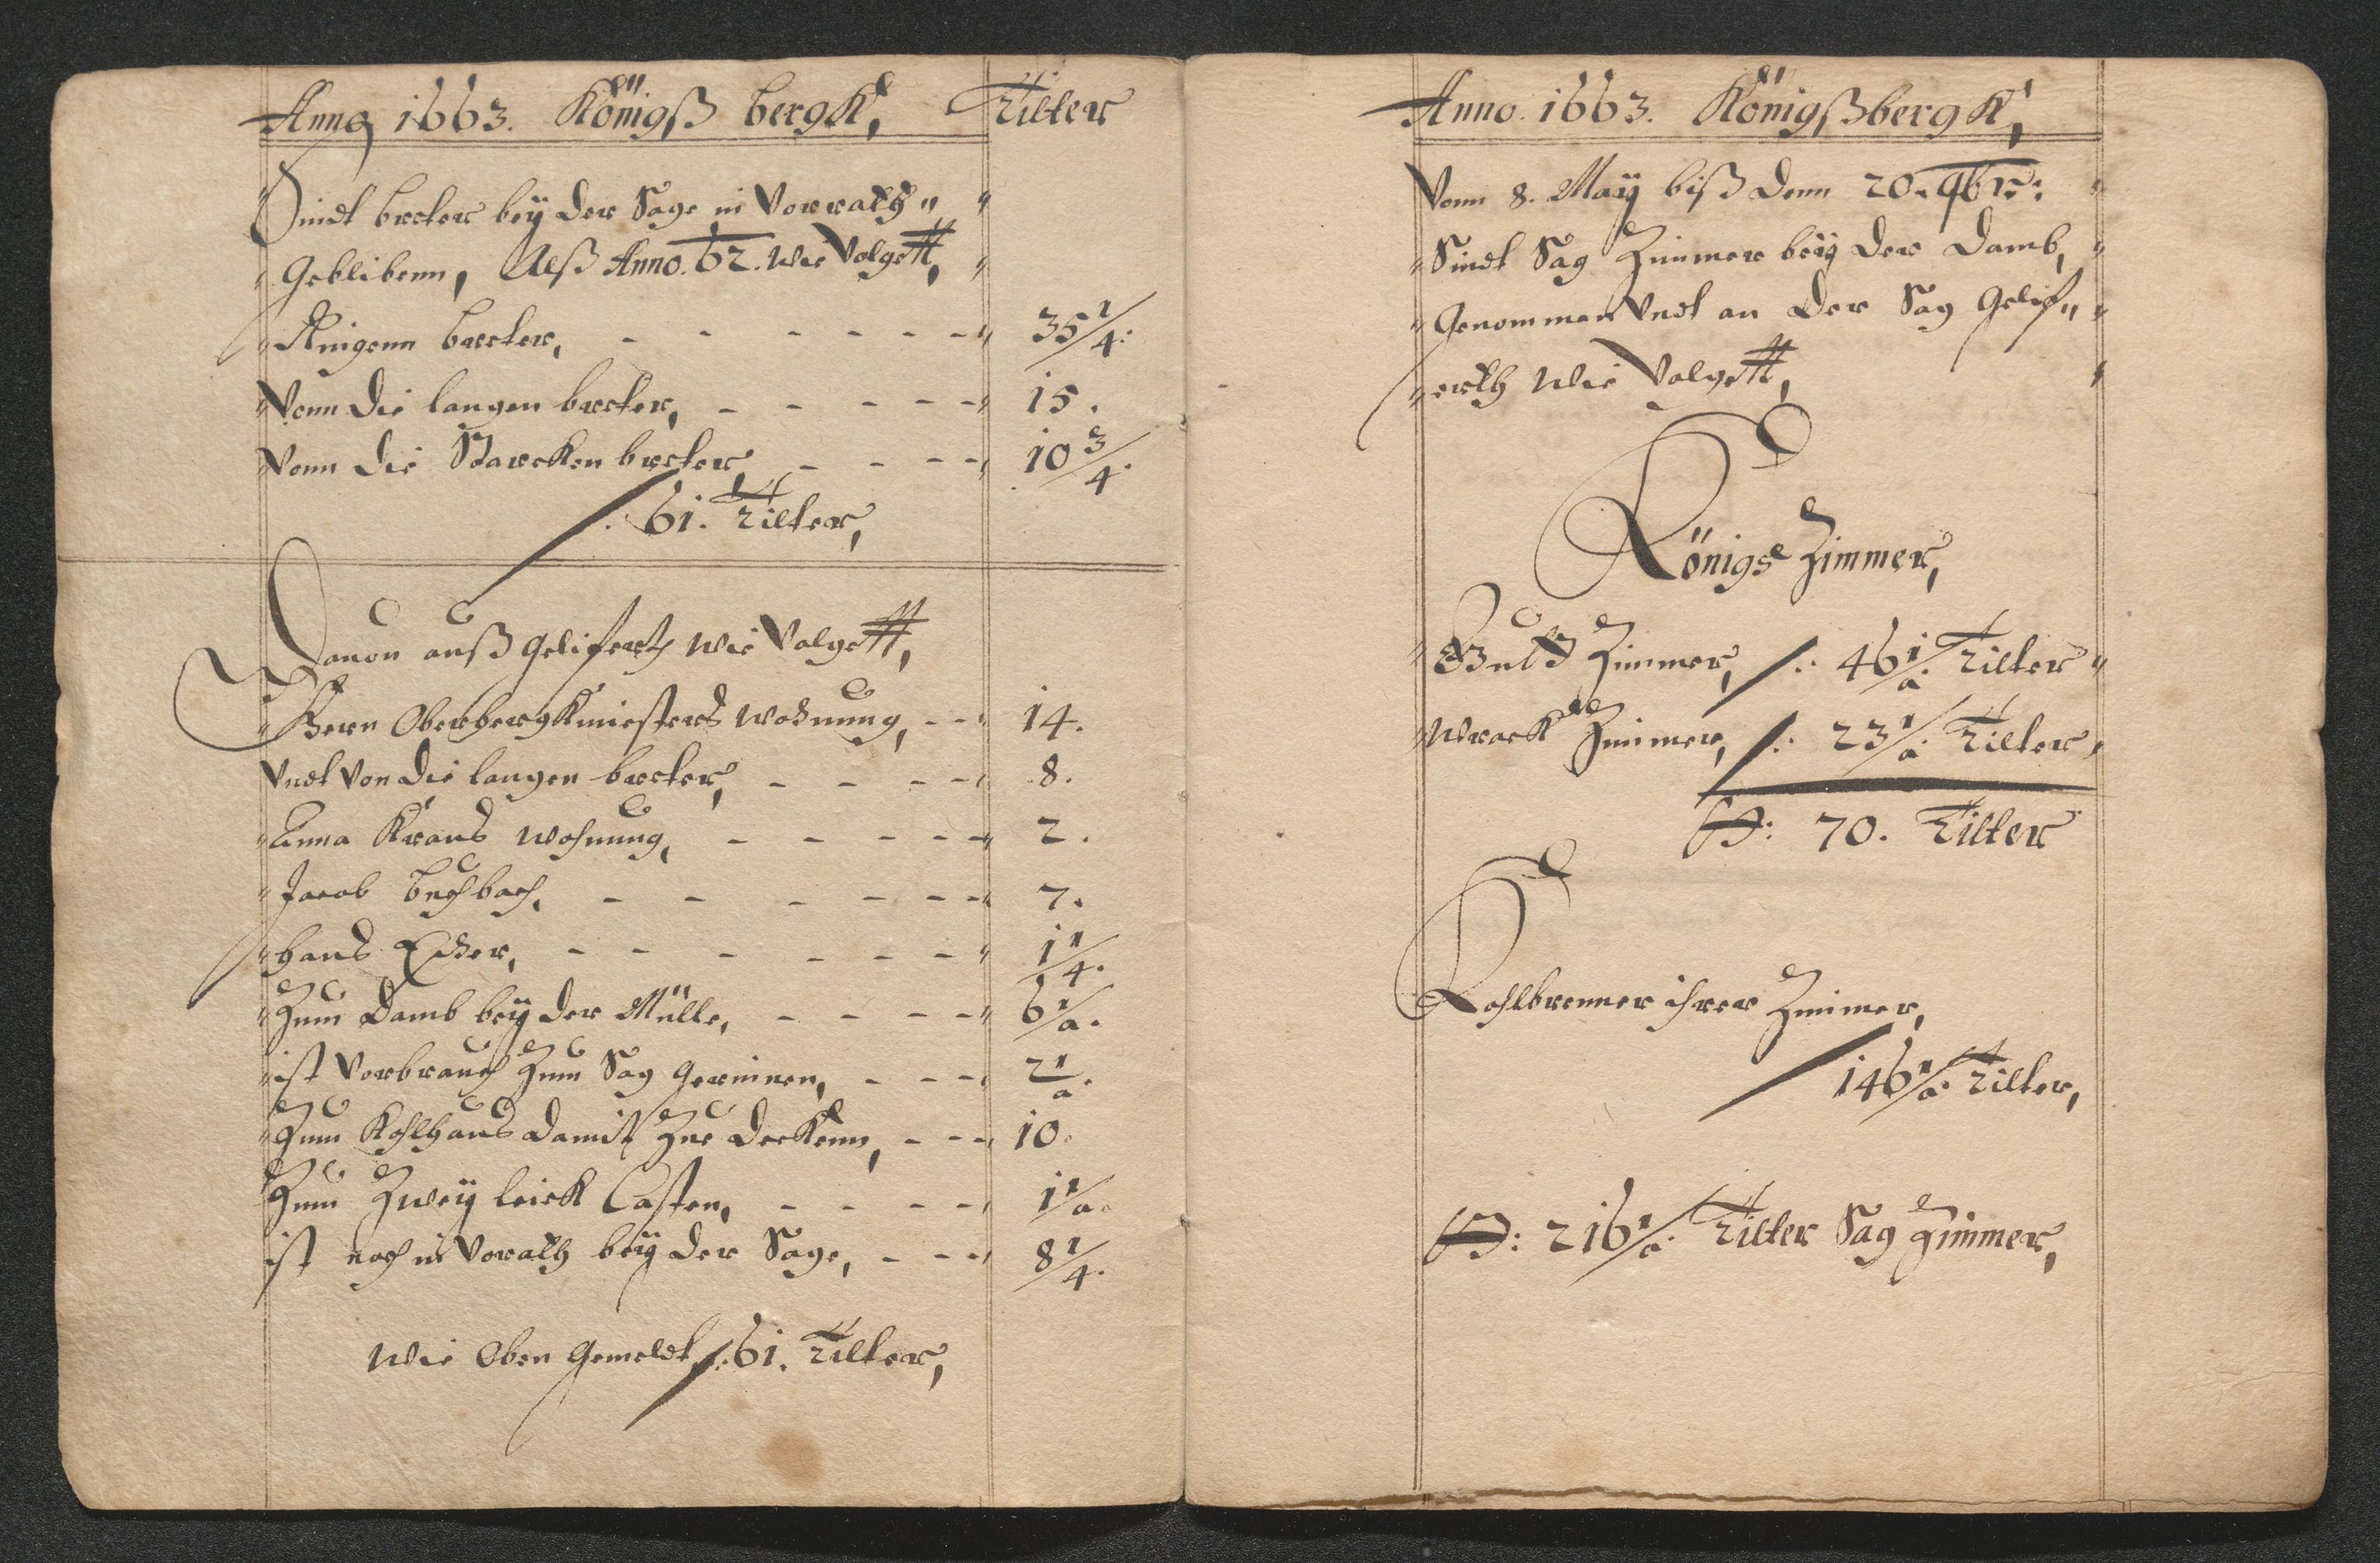 Anno 1663. Königßbergk, Tilter
Sindt breter beÿ der Sage in Vorrath„
Geblibenn, Alß Anno. 62. wie Volgett,
Knigenn breter, - - - - - - 35 1/4.
Vonn die langen breter, - - - - - 15.
Vonn die Starcken breter - - - - 10 3/4.
/. 61. Tilter,
Dauon auß geliferth wie Volgett,
Hern Oberbergkmiesters wohnung, - - 14.
Vndt Von die langen breter, - - - - 8.
Anna Kraus wohnung, - - - - - 2.
Jacob buchbach, - - - - - - - 7.
hans Exter, - - - - - - - 1 1/4.
Zum Damb beÿ der Mülle, - - - - 6 1/2.
ist Verbrauch zum Sag gerinnen, - - - 2 1/2.
Zum Kohlhaus damit zue deckenn, - - - 10.
Zum Zweÿ leick Casten, - - - - 1 1/2.
ist noch in Vorath beÿ der Sage, - - - 8 1/4.
Wie Oben gemeldt /. 61. Tilter,
Anno. 1663. Königßbergk,
Vonn 8. Maÿ biß denn 20. 9br:
Sindt Sag Zimmer beÿ der Damb,
Genommen Vndt an der Sag gelif„
erth wie Volgett,
Königs Zimmer,
Gutt Zimmer, /. 46 1/2. Tilter
Wrack Zimmer, /. 23 1/2. Tilter,
S: 70. Tilter
Kohlbrenner ihrer Zimmer,
146 1/2. Tilter,
S: 216 1/2. Tilter Sag Zimmer,